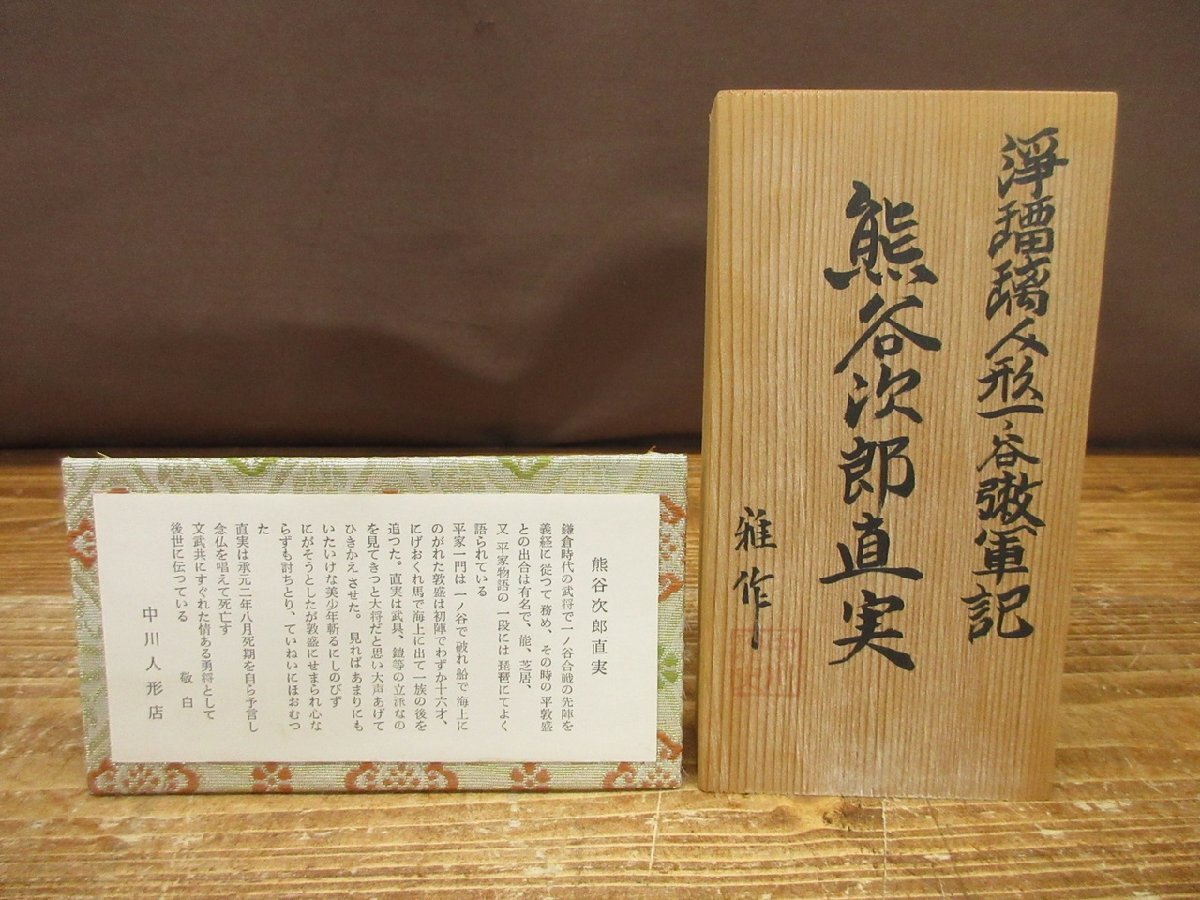 浄瑠璃人形一ノ谷嫩軍記
熊谷次郎直実
雅作
熊谷次郎直実
鎌倉時代の武将で一ノ谷合戦の先陣を
義経に従つて務め、その時の平敦盛
との出合は有名で、能、芝居、
又平家物語の一段には琵琶にてよく
語られている
平家一門は一ノ谷で破れ船で海上に
のがれた敦盛は初陣でわずか十六才、
にげおくれ馬で海上に出て一族の後を
追つた。直実は武具、鎧等の立派なの
を見てきつと大将だと思い大声あげて
ひきかえさせた。見ればあまりにも
いたいけな美少年斬るにしのびず
にがそうとしたが敦盛にせまられ心な
らずも討ちとり、ていねいにほおむつ
た
直実は承元二年八月死期を自ら予言し
念仏を唱えて死亡す
文武共にすぐれた情ある勇将として
後世に伝つている
敬白
中川人形店